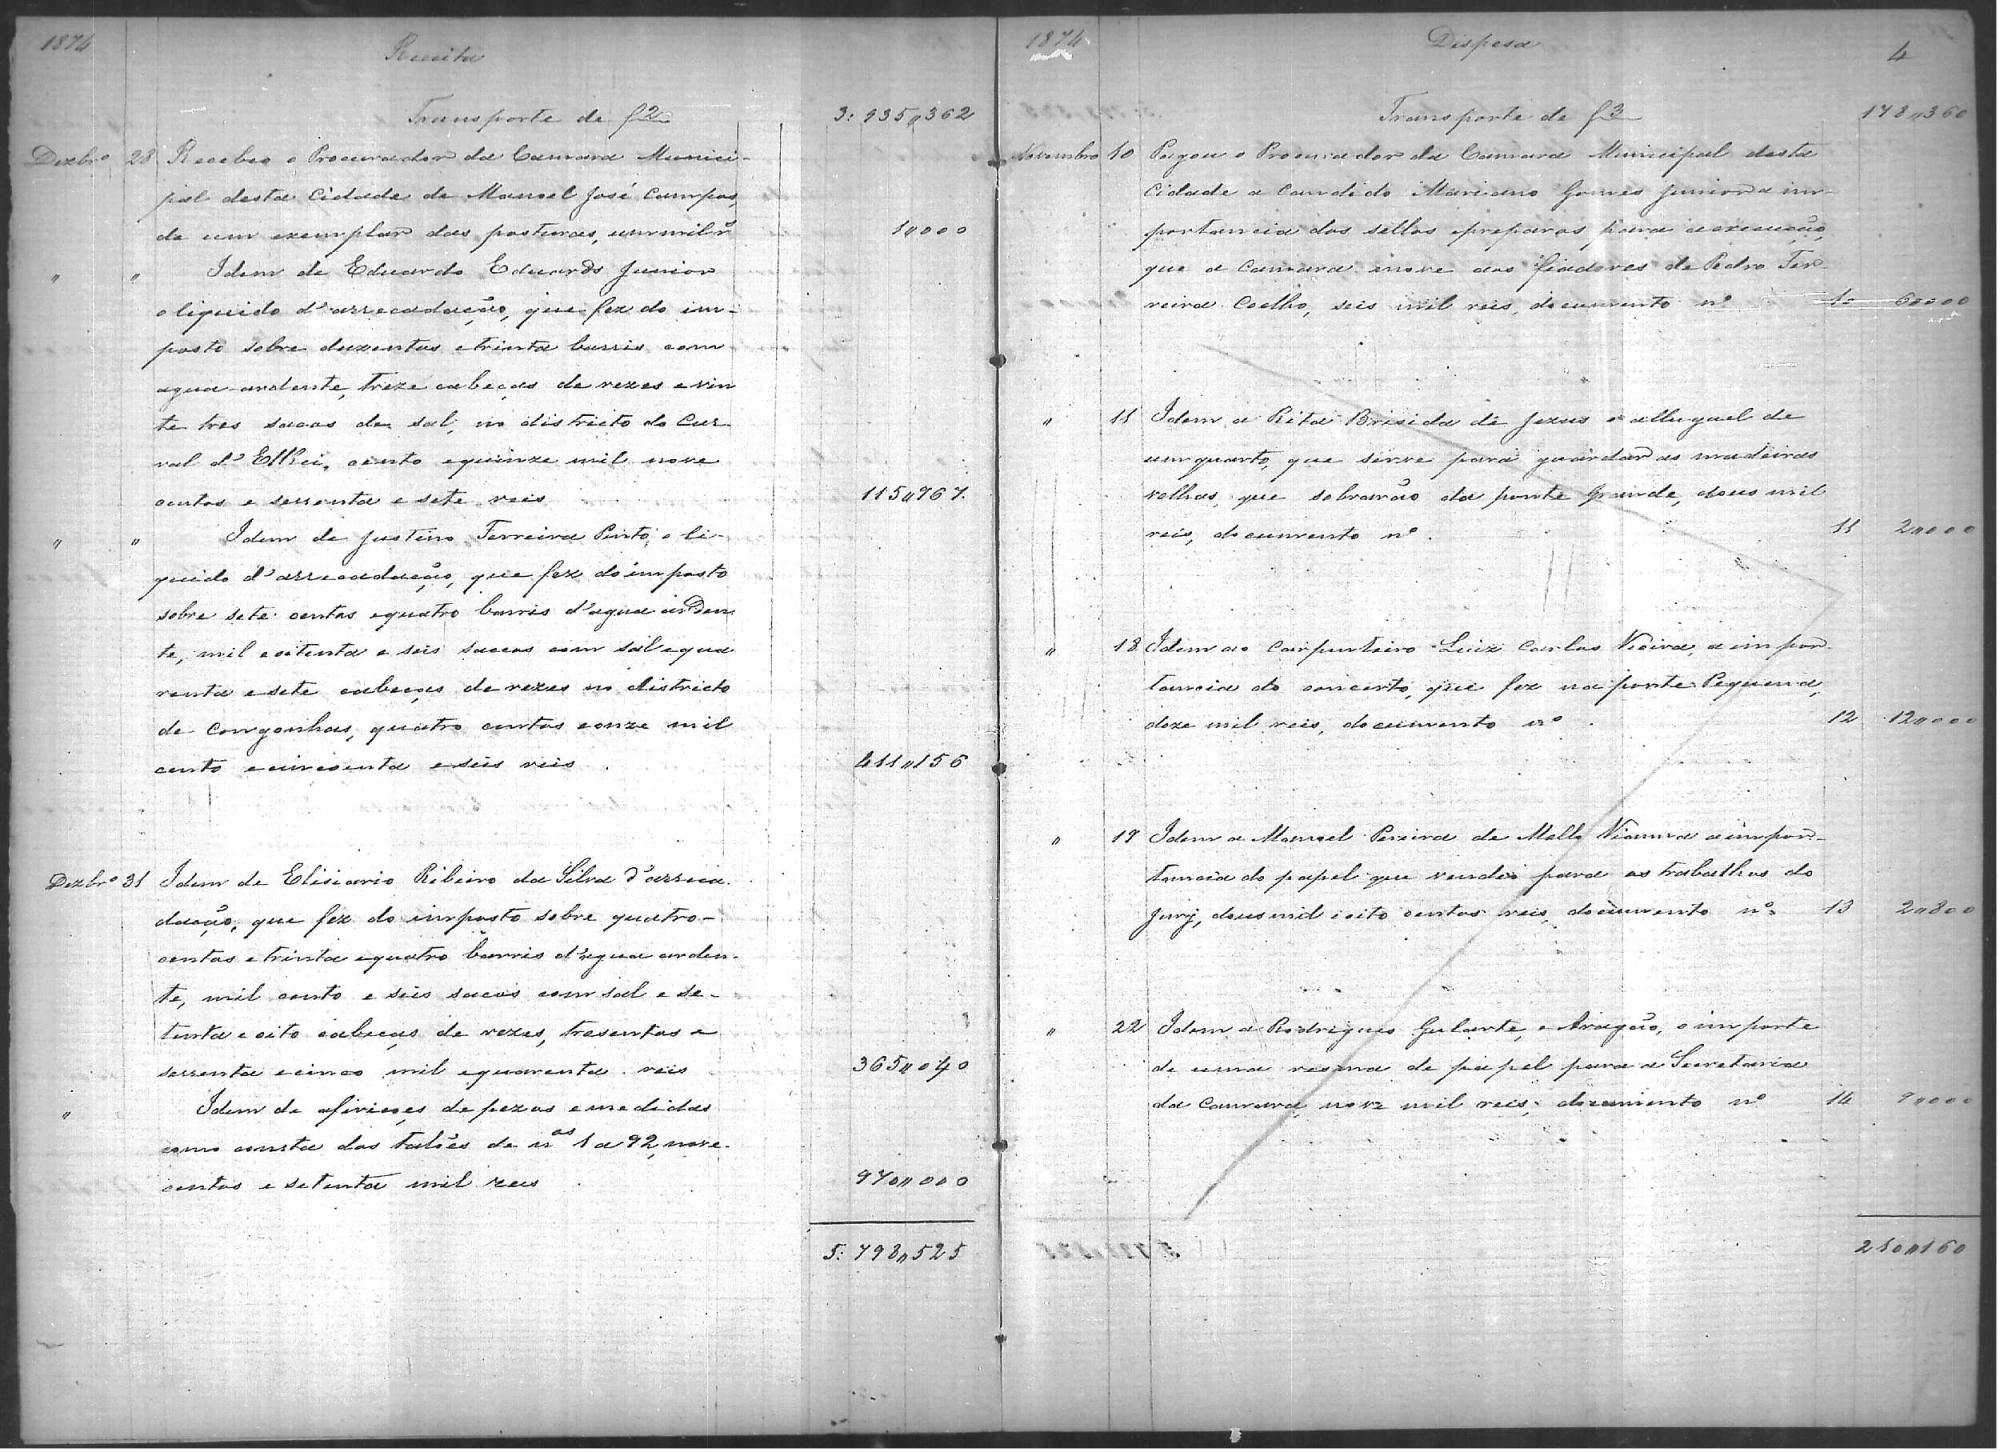 1874
Receita
Transporte de f 2 3:935"362
Dezbrº 28 Recebeo o Procurador da Camara Munici-
pal desta Cidade de Manoel José Campos,
de um exemplar das posturas, um mil rˢ 1"000
" " Idem de Eduardo Eduards Junior
o liquido d'arrecadação, que fez do im-
posto sobre duzentos e trinta barris com
agua-ardente, treze cabeças de rezes e vin
te tres sacos de sal, no districto do Cur-
ral d'ElRei, cento e quinze mil nove
centos e sessenta e sete reis 115"967
" " Idem de Justino Ferreira Pinto, o li-
quido d'arrecadação, que fez do imposto
sobre sete centos e quatro barris d'agua arden
te, mil e oitenta e seis sacos com sal e qua
renta e sete cabeças de rezes no districto
de Congonhas, quatro centos e onze mil
cento e cincoenta e seis reis 411"156
Dezbrº 31 Idem de Elisiario Ribeiro da Silva d'arreca-
dação, que fez do imposto sobre quatro-
centos e trinta e quatro barris d'agua arden-
te, mil cento e seis sacos com sal e se-
tenta e oito cabeças de rezes, tresentos e
sessenta e cinco mil e quarenta reis 365"040
" Idem de afirições de pezos e medidas
como consta dos talões de nᵒˢ 1 a 92, nove-
centos e setenta mil reis 970"000
5:798"525
1874
Dispesa
4
Transporte de f 3 178"360
Novembro 10 Pagou o Procurador da Camara Municipal desta
Cidade a Candido Mariano Gomes Junior a im-
portancia dos sellos e preparos para a execução,
que a Camara move aos fiadores de Pedro Fer-
reira Coelho, seis mil reis, documento nº 10 6"000
" 11 Idem a Rita Brisida de Jezus o alluguel de
um quarto, que serve para guardar as madeiras
velhas, que sobrarão da ponte Grande, dous mil
reis, documento nº 11 2"000
" 18 Idem ao Carpinteiro Luiz Carlos Vieira, a impor-
tancia do concerto, que fez na ponte Pequena,
doze mil reis, documento nº 12 12"000
" 19 Idem a Manoel Pereira de Mello Vianna a impor-
tancia do papel que vendeo para os trabalhos do
Jury, dous mil e oito centos reis, documento nº 13 2"800
" 22 Idem a Rodrigues Gularte, e Aragão, o importe
de uma resma de papel para a Secretaria
da Camara, nove mil reis, documento nº 14 9"000
210"160